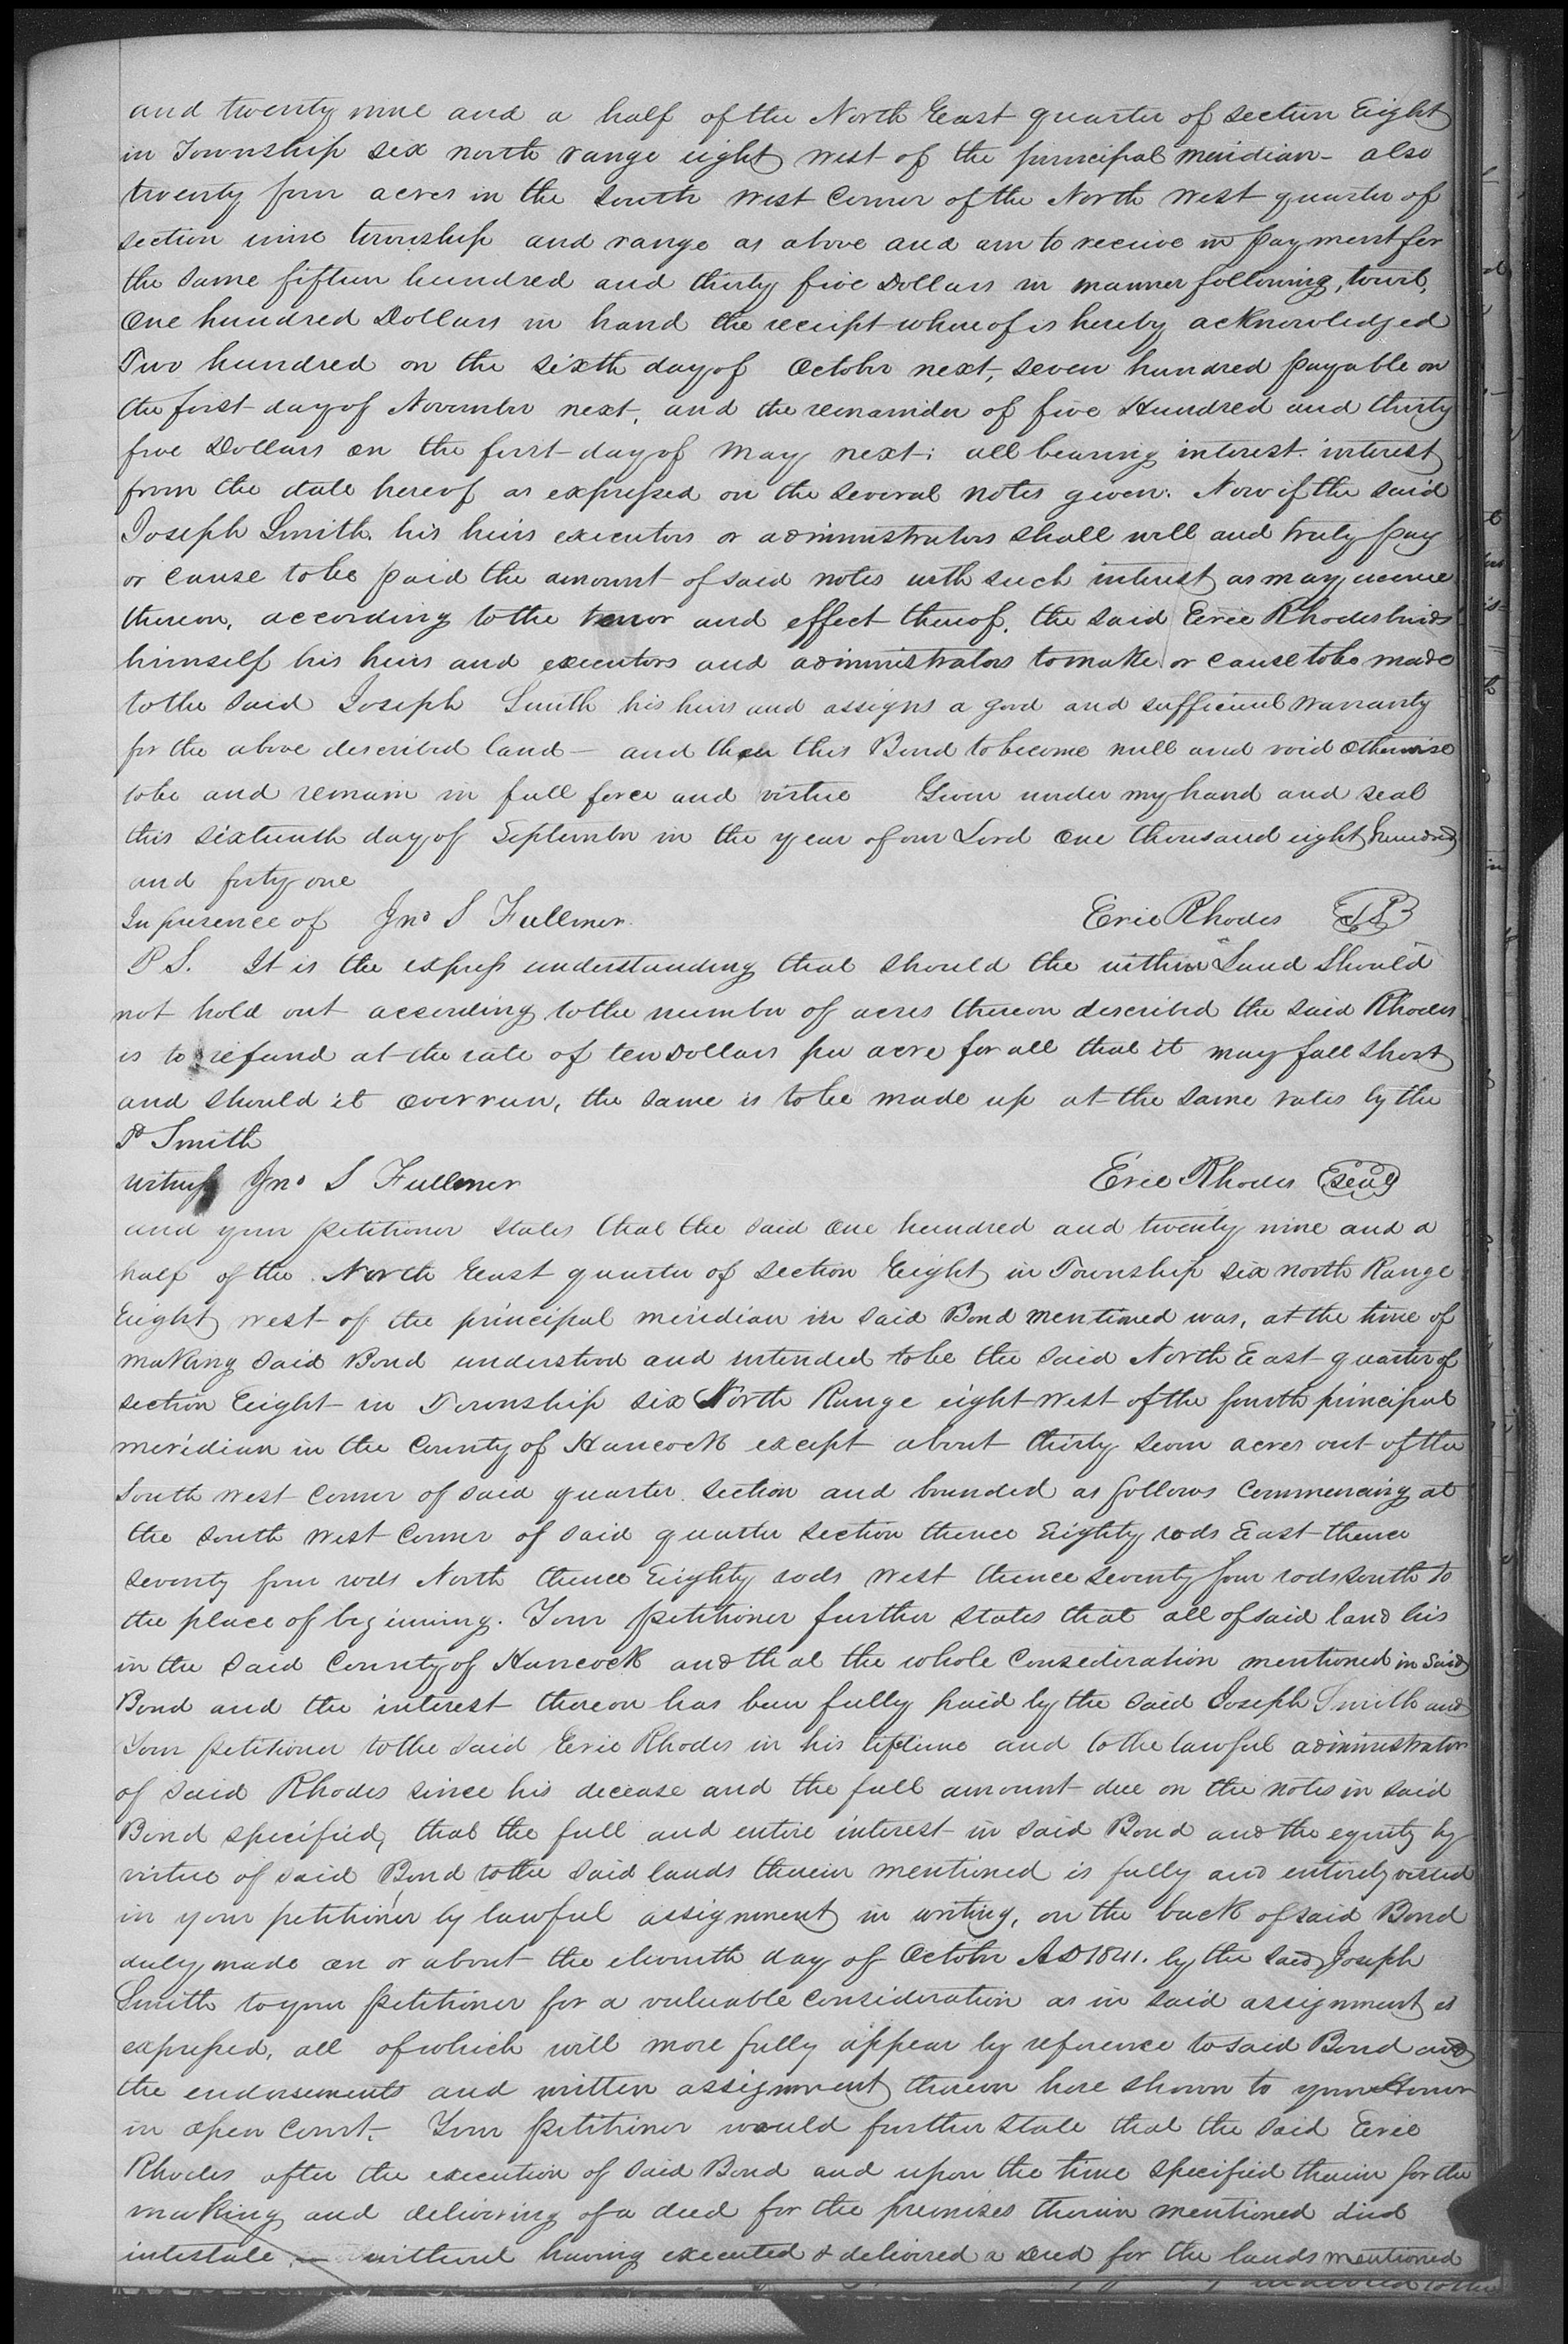 and twenty nine and a half of the North East quarter of section Eight
in Township six north range eight west of the principal meridian - also
twenty four acres in the South West Corner of the North West quarter of
section nine township and range as above and am to receive in payment for
the same fifteen hundred and thirty five Dollars in manner following, towit,
One hundred Dollars in hand the receipt whereof is hereby acknowledged
Two hundred on the sixth day of October next, seven hundred payable on
the first day of November next, and the remainder of five Hundred and thirty
five Dollars on the first day of May next; all bearing interest. interest
from the date hereof as expressed on the several notes given. Now if the said
Joseph Smith, his heirs executors or administrators shall well and truly pay
or cause to be paid the amount of said notes with such interest as may accrue
thereon, according to the tenor and effect thereof, the said Evie Rhodes binds
himself his heirs and executors and administrators to make or cause to be made
to the said Joseph Smith his heirs and assigns a good and sufficient warranty
for the above described land - and then this Bond to become null and void otherwise
to be and remain in full force and virtue Given under my hand and seal
this sixteenth day of September in the year of our Lord One thousand eight hundred
and forty one
In presence of Jno S Fullmer. Evie Rhodes
P S. It is the express understanding that should the within Land Should
not hold out according to the number of acres thereon described the said Rhodes
is to refund at the rate of ten Dollars per acre for all that it may fall short
and should it overrun, the same is to be made up at the same rates by the
sd Smith
witness Jno S Fullmer Evie Rhodes seal
and your petitioner states that the said one hundred and twenty nine and a
half of the North East quarter of section Eight in Township six north Range
Eight west of the principal meridian in said Bond mentioned was, at the time of
making said Bond understood and intended to be the said North East quarter of
section Eight in Township six North Range eight West of the fourth principal
meridian in the County of Hancock except about thirty seven acres out of the
South west corner of said quarter section and bounded as follows Commencing at
the South West Corner of said quarter section thence Eighty rods East thence
seventy four rods North thence Eighty rods West thence seventy four rods south to
the place of beginning. Your petitioner further states that all of said land lies
in the said County of Hancock and that the whole Consideration mentioned in said
Bond and the interest thereon has been fully paid by the said Joseph Smith and
Your petitioner to the said Evie Rhodes in his lifetime and to the lawful administrator
of said Rhodes since his decease and the full amount due on the notes in said
Bond specified, that the full and entire interest in said Bond and the equity by
virtue of said Bond to the said lands therein mentioned is fully and entirely vested
in your petitioner by lawful assignment in writing, on the back of said Bond
duly made on or about the eleventh day of October AD 1841. by the said Joseph
Smith to your petitioner for a valuable consideration as in said assignment is
expressed, all of which will more fully appear by reference to said Bond and
the endorsements and written assignment thereon here shown to your Honor
in open Court. Your petitioner would further state that the said Evie
Rhodes after the execution of said Bond and upon the time specified therein for the
making and delivering of a deed for the premises therein mentioned died
intestate - without having executed & delivered a Deed for the lands mentioned